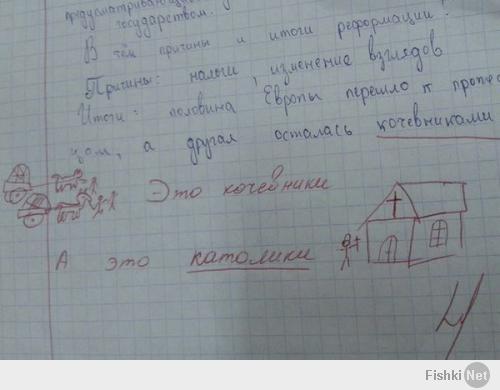 государством.
В чём причины и итоги реформации?
Причины: налоги, изменение взглядов
Итоги: половина Европы перешло к
а другая осталась кочевниками
Это кочевники
А это католики
4
Fishki.Net